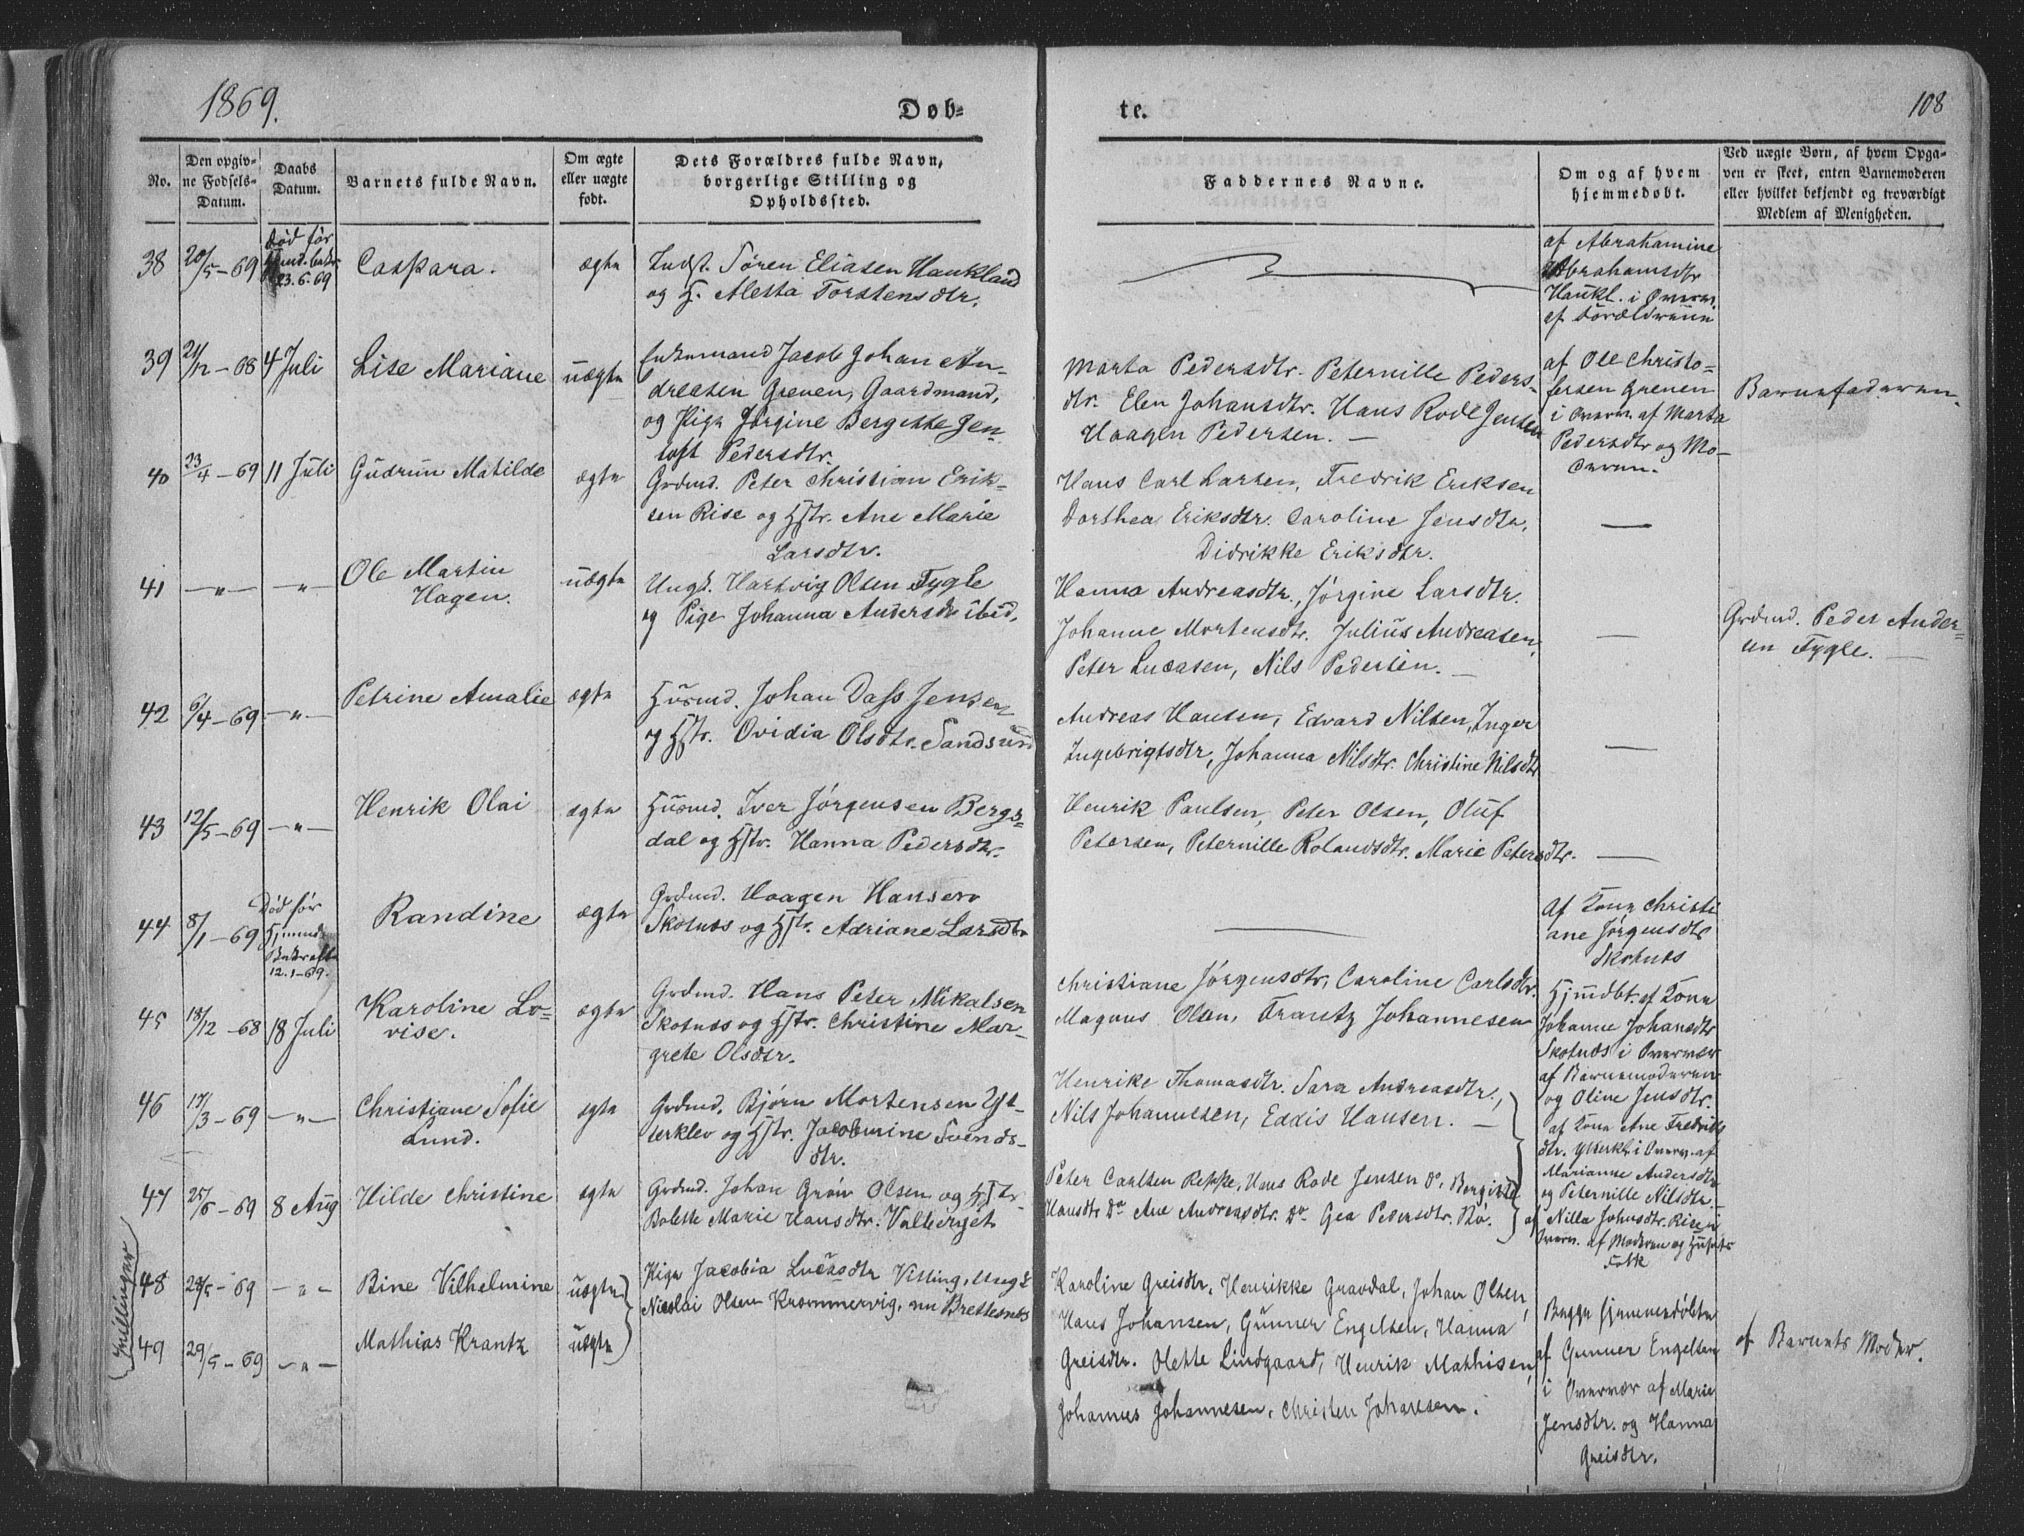 1869.
108
Døb-
te.
No.
Den opgiv-
ne Fødsels-
Datum.
Daabs
Datum.
Barnets fulde Navn.
Om ægte
eller uægte
født.
Dets Forældres fulde Navn,
borgerlige Stilling og
Opholdssted.
Faddernes Navne.
Om og af hvem
hjemmedøbt.
Ved uægte Børn, af hvem Opga-
ven er skeet, enten Barnemoderen
eller hvilket bekjendt og troværdigt
Medlem af Menigheden.
38
20/5-69
død før
23.6.69
Caspara.
ægte
Indst. Søren Eliasen Haukland
og H. Aletta Torstensdtr.
af Abrahamine
Abrahamsdtr
Haukl. i Overv.
af Forældrene
39
21/12-68
4 Juli
Lise Mariane
uægte
Enkemand Jacob Johan An-
dreasen Greven, Gaardmand,
og Pige Jørgine Bergitte Jen-
toft Pedersdtr.
Marta Pedersdtr. Peternille Peders-
dtr. Elen Johansdtr. Hans Rode Jensen
Haagen Pedersen. —
af Ole Christo-
fersen Greven
i Overv. af Marta
Pedersdtr og Mo-
deren.
Barnefaderen.
40
23/4-69
11 Juli
Gudrun Matilde
ægte
Grdmd. Peter Christian Erik-
sen Rise og Hstr. Ane Marie
Larsdtr.
Hans Carl Larsen, Fredrik Eriksen
Dorthea Eriksdtr. Caroline Jensdtr,
Didrikke Eriksdtr.
—
41
—"—
—"—
Ole Martin
Hagen.
uægte
Ungk. Hartvig Olsen Fygle
og Pige Johanna Andersdr ibid.
Hanna Andreasdtr., Jørgine Larsdtr.
Johanne Mortensdtr. Julius Andreasen,
Peter Lucasen, Nils Pedersen. —
—
Grdmd. Peder Ander-
sen Fygle. —
42
6/4-69
—"—
Petrine Amalie
ægte
Husmd. Johan Dass Jensen
og Hstr. Ovidia Olsdtr. Sandsund
Andreas Hansen, Edvard Nilsen, Inger
Ingebrigtsdtr, Johanna Nilsdtr. Christine Nilsdtr
—
43
12/5-69
—"—
Henrik Olai
ægte
Husmd. Iver Jørgensen Bergs-
dal og Hstr. Hanna Pedersdtr.
Henrik Paulsen, Peter Olsen, Oluf
Petersen, Peternille Rolandsdtr. Marie Petersdtr.
—
44
8/1-69
Død før
12.1-69.
Randine
ægte
Grdmd. Haagen Hansen
Skotnæs og Hstr. Adriane Larsdtr
Af Kone Christi
ane Jørgensdtr
Skotnæs
45
18/12-68
18 Juli
Karoline Lo-
vise.
ægte
Grdmd. Hans Peter Mikalsen
Skotnæs og Hstr. Christine Mar-
grete Olsdtr.
Christiane Jørgensdtr, Caroline Carlsdtr.
Magnus Olsen, Frantz Johannesen
Hjmdbt. af Kone
Johanne Johansdtr
Skotnæs i Overvær
af Barnemoderen
og Oline Jensdtr.
46
17/3-69
—"—
Christiane Sofie
Lund.
ægte
Grdmd. Bjørn Mortensen Yt-
terklev og Hstr. Jacobmine Svends-
dtr.
Henrike Thomasdtr. Sara Andreasdtr.,
Nils Johannesen, Eddis Hansen. —
af Kone Ane Fredriks
dtr. Ytterkl. i Overv. af
Marianne Andersdtr
og Peternille Nilsdtr.
47
25/6-69
8 Aug
Hilde Christine
ægte
Grdmd. Johan Grøn Olsen og Hstr
Bolette Marie Hansdtr. Valberget
Peter Carlsen Reppe, Hans Rode Jensen Do. Bergitte
Hansdtr Do Ane Andreasdtr. Do Gea Pedersdtr. Bø.
af Nilla Johnsdtr. Rise i
Overv. af Moderen og Husets
Folk
Tvillinger
48
29/5-69
—"—
Bine Vilhelmine
uægte
Pige Jacobia Lucasdtr Vetting, Ungk
Nicolai Olsen Krommervig, nu Brettesnæs
Karoline Greisdtr, Henrikke Gravdal, Johan Olsen,
Hans Johansen, Gunner Engelsen, Hanna
Greisdtr. Olette Lindgaard, Henrik Mathisen,
Johannes Johannesen, Christen Johansen.
Begge hjemmedøbte
af Gunner Engelsen
i Overvær af Marie
Jensdtr. og Hanna
Greisdtr.
af Barnets Moder.
49
29/5-69
—"—
Mathias Krantz
uægte